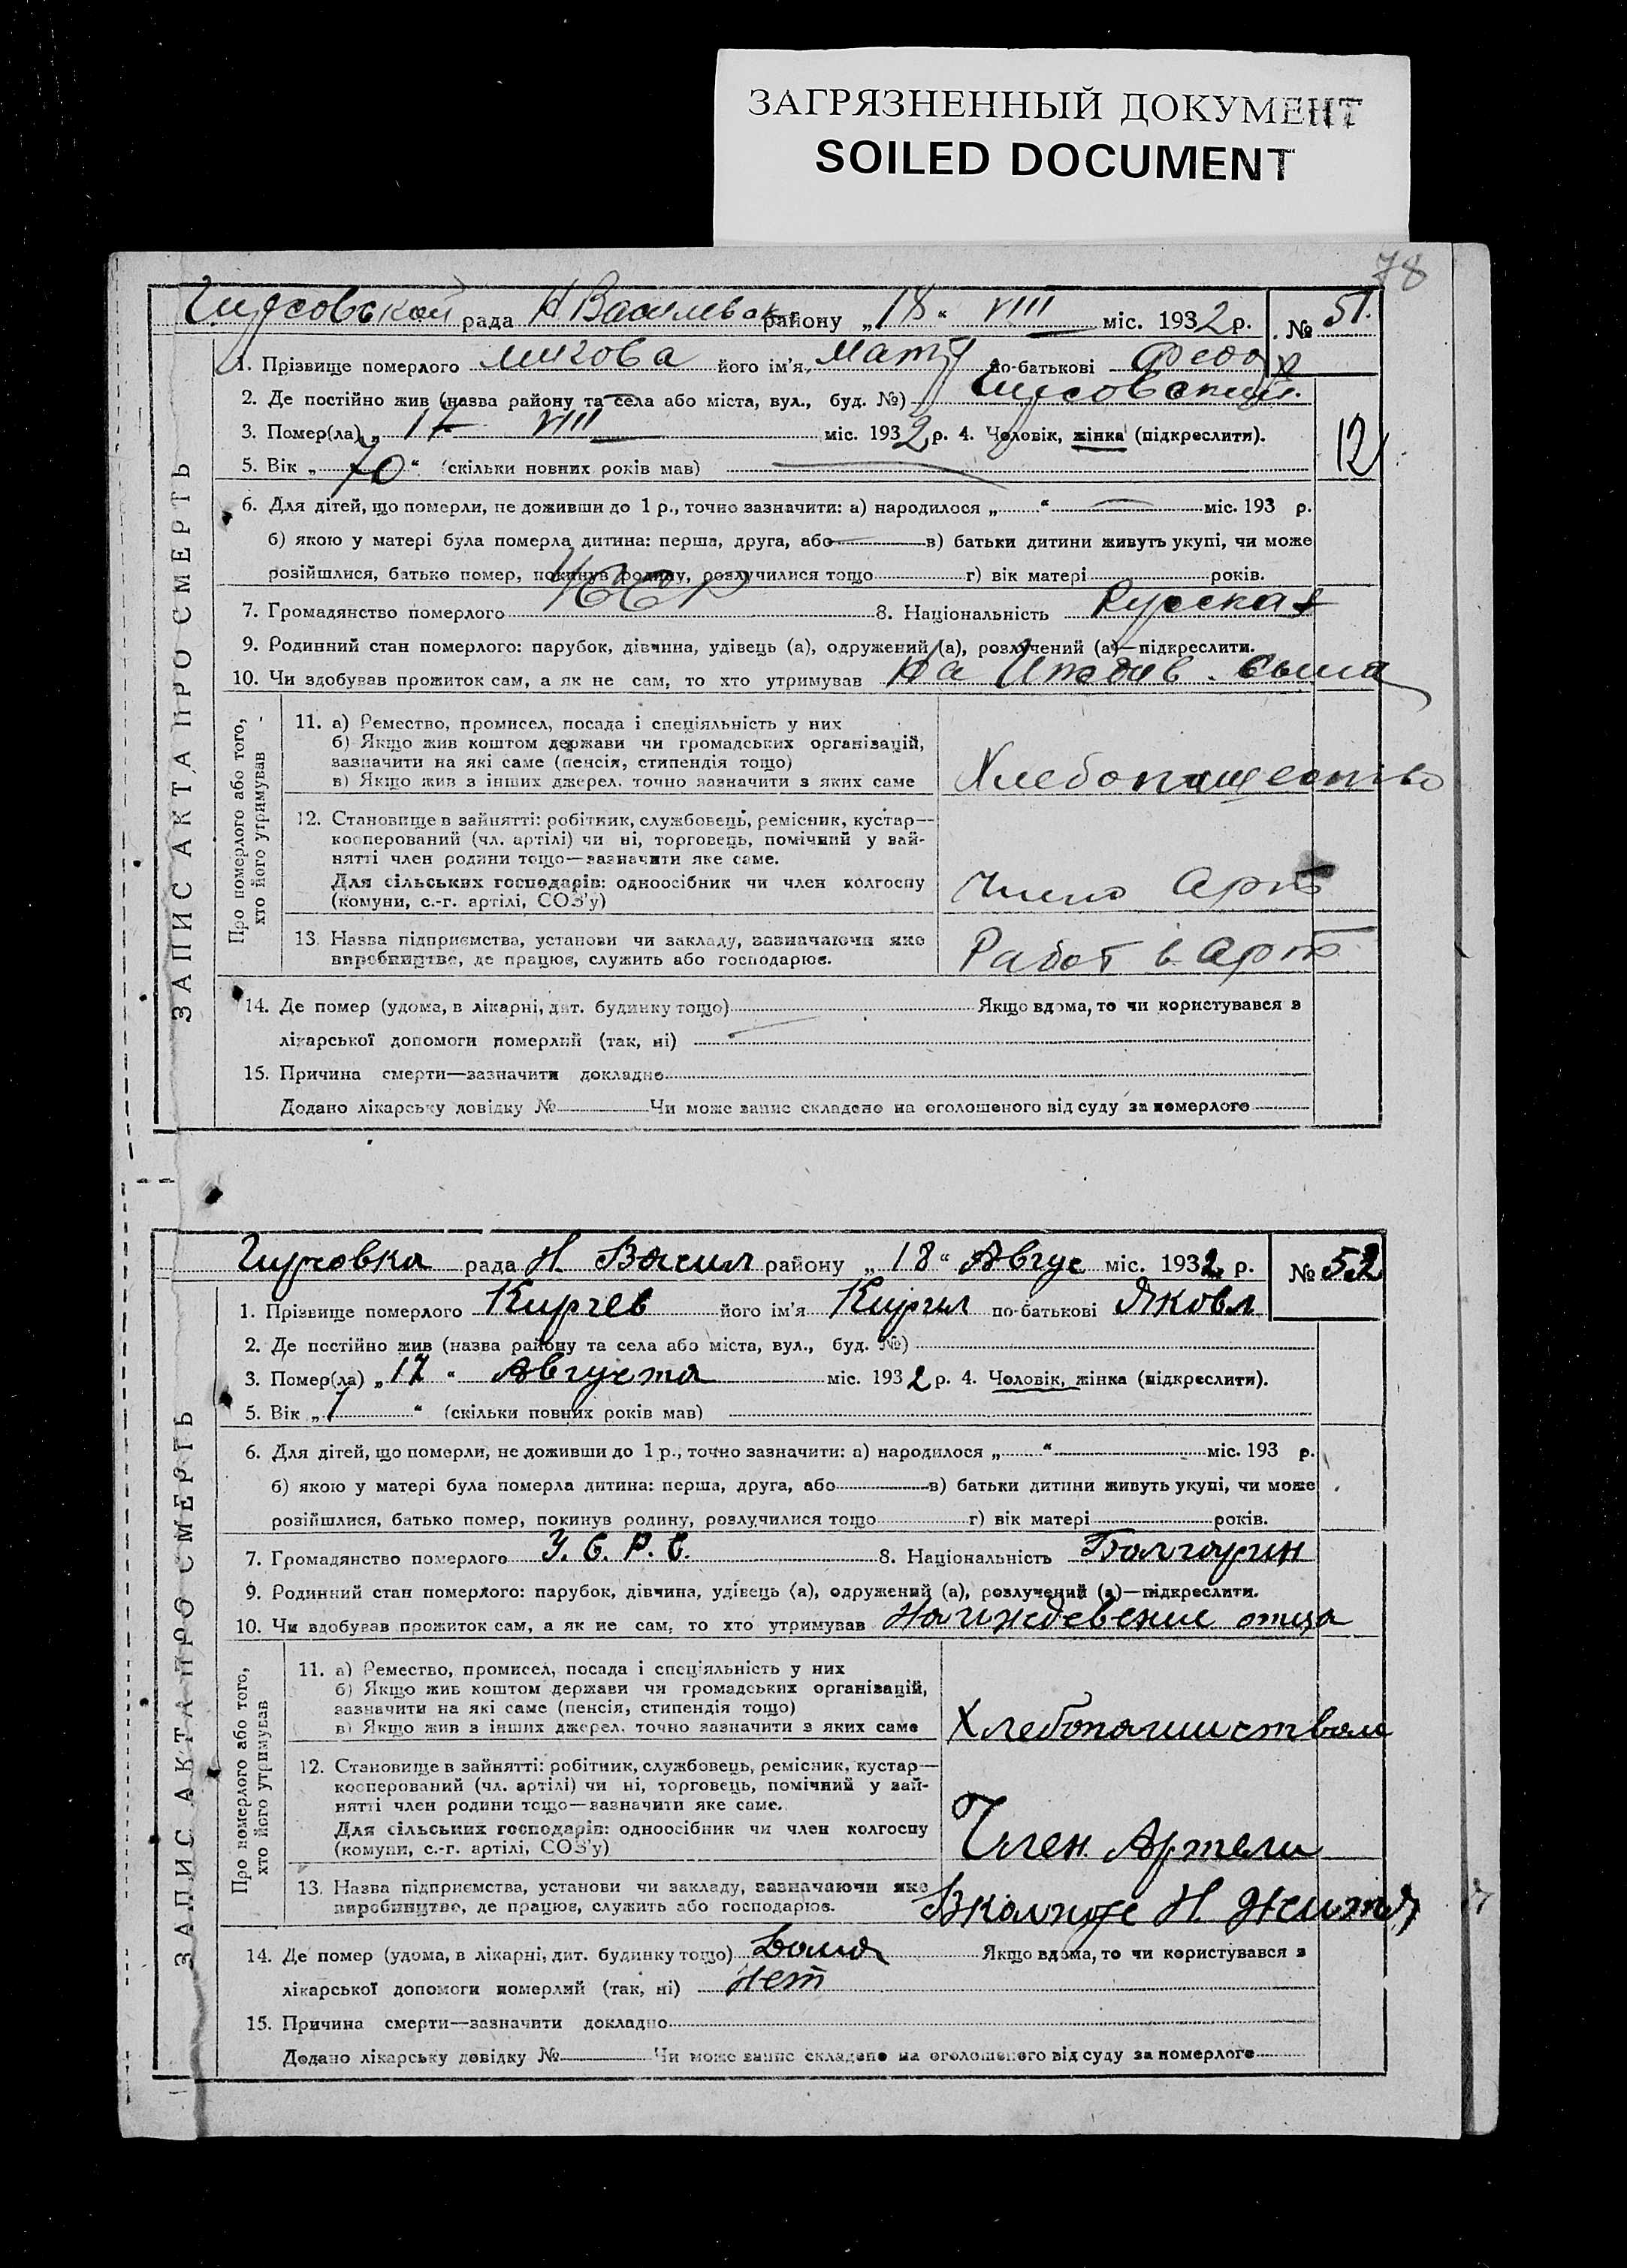 ЗАГРЯЗНЕННЫЙ ДОКУМЕНТ
SOILED DOCUMENT
78
рада района „18“ VIII міс. 1932 р. № 51.
1. Прізвище померлого його ім'я по-батькові Федор
2. Де постійно жив (назва району та села або міста, вул., буд. №)
3. Помер(ла) „17“ VIII міс. 1932 р. 4. Чоловік, жінка (підкреслити).
12
5. Вік „70“ (скільки повних років мав)
6. Для дітей, що померли, не доживши до 1 р., точно зазначити: а) народилося „ “ міс. 193 р.
б) якою у матері була померла дитина: перша, друга, або в) батьки дитини живуть укупі, чи може
розійшлися, батько помер, покинув родину, розлучилися тощо г) вік матері років.
7. Громадянство померлого 8. Національність Руская
9. Родинний стан померлого: парубок, дівчина, удівець (а), одружений (а), розлучений (а)—підкреслити.
10. Чи здобував прожиток сам, а як не сам, то хто утримував На Иждив. сына
ЗАПИС АКТА ПРО СМЕРТЬ
Про померлого або того, хто його утримував
11. а) Ремество, промисел, посада і спеціяльність у них
б) Якщо жив коштом держави чи громадських організацій,
зазначити на які саме (пенсія, стипендія тощо)
в) Якщо жив з інших джерел, точно зазначити з яких саме
Хлебопашество
12. Становище в зайнятті: робітник, службовець, ремісник, кустар—
кооперований (чл. артілі) чи ні, торговець, помічний у зай-
нятті член родини тощо—зазначити яке саме.
Для сільських господарів: одноосібник чи член колгоспу
(комуни, с.-г. артілі, СОЗ'у)
Арт
13. Назва підприємства, установи чи закладу, зазначаючи яке
виробництво, де працює, служить або господарює.
Работ в арт
14. Де помер (удома, в лікарні, дит. будинку тощо) Якщо вдома, то чи користувався з
лікарської допомоги померлий (так, ні)
15. Причина смерти—зазначити докладно
Додано лікарську довідку № Чи може запис складено на оголошеного від суду за померлого
рада Н. Васил району „18“ Авгус міс. 1932 р. № 52
1. Прізвище померлого Кирчев його ім'я Кирил по-батькові Яковл
2. Де постійно жив (назва району та села або міста, вул., буд. №)
3. Помер(ла) „17“ Августа міс. 1932 р. 4. Чоловік, жінка (підкреслити).
5. Вік „1“ (скільки повних років мав)
6. Для дітей, що померли, не доживши до 1 р., точно зазначити: а) народилося „ “ міс. 193 р.
б) якою у матері була померла дитина: перша, друга, або в) батьки дитини живуть укупі, чи може
розійшлися, батько помер, покинув родину, розлучилися тощо г) вік матері років.
7. Громадянство померлого У. С. Р. С. 8. Національність Болгарин
9. Родинний стан померлого: парубок, дівчина, удівець (а), одружений (а), розлучений (а)—підкреслити.
10. Чи здобував прожиток сам, а як не сам, то хто утримував На иждевение отца
ЗАПИС АКТА ПРО СМЕРТЬ
Про померлого або того, хто його утримував
11. а) Ремество, промисел, посада і спеціяльність у них
б) Якщо жив коштом держави чи громадських організацій,
зазначити на які саме (пенсія, стипендія тощо)
в) Якщо жив з інших джерел, точно зазначити з яких саме
12. Становище в зайнятті: робітник, службовець, ремісник, кустар—
кооперований (чл. артілі) чи ні, торговець, помічний у зай-
нятті член родини тощо—зазначити яке саме.
Для сільських господарів: одноосібник чи член колгоспу
(комуни, с.-г. артілі, СОЗ'у)
Член Артели
13. Назва підприємства, установи чи закладу, зазначаючи яке
виробництво, де працює, служить або господарює.
14. Де помер (удома, в лікарні, дит. будинку тощо) Дома Якщо вдома, то чи користувався з
лікарської допомоги померлий (так, ні) Нет
15. Причина смерти—зазначити докладно
Додано лікарську довідку № Чи може запис складено на оголошеного від суду за померлого